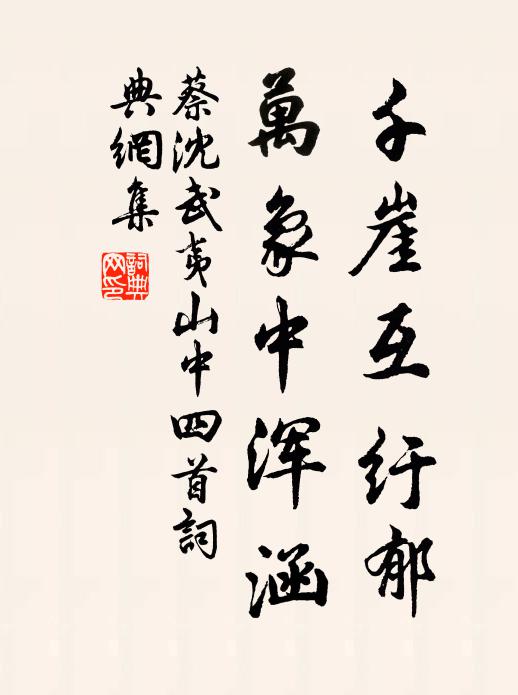 千崖互纡郁
萬象中浑涵
蔡沈武夷山中四首詞
典網集
詞典网印